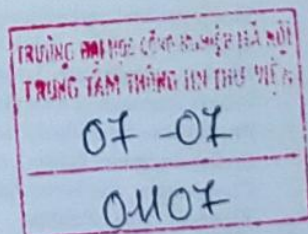 TRƯỜNG ĐẠI HỌC CÔNG NGHIỆP HÀ NỘI
TRUNG TÂM THÔNG TIN THƯ VIỆN
07 - 07
01107